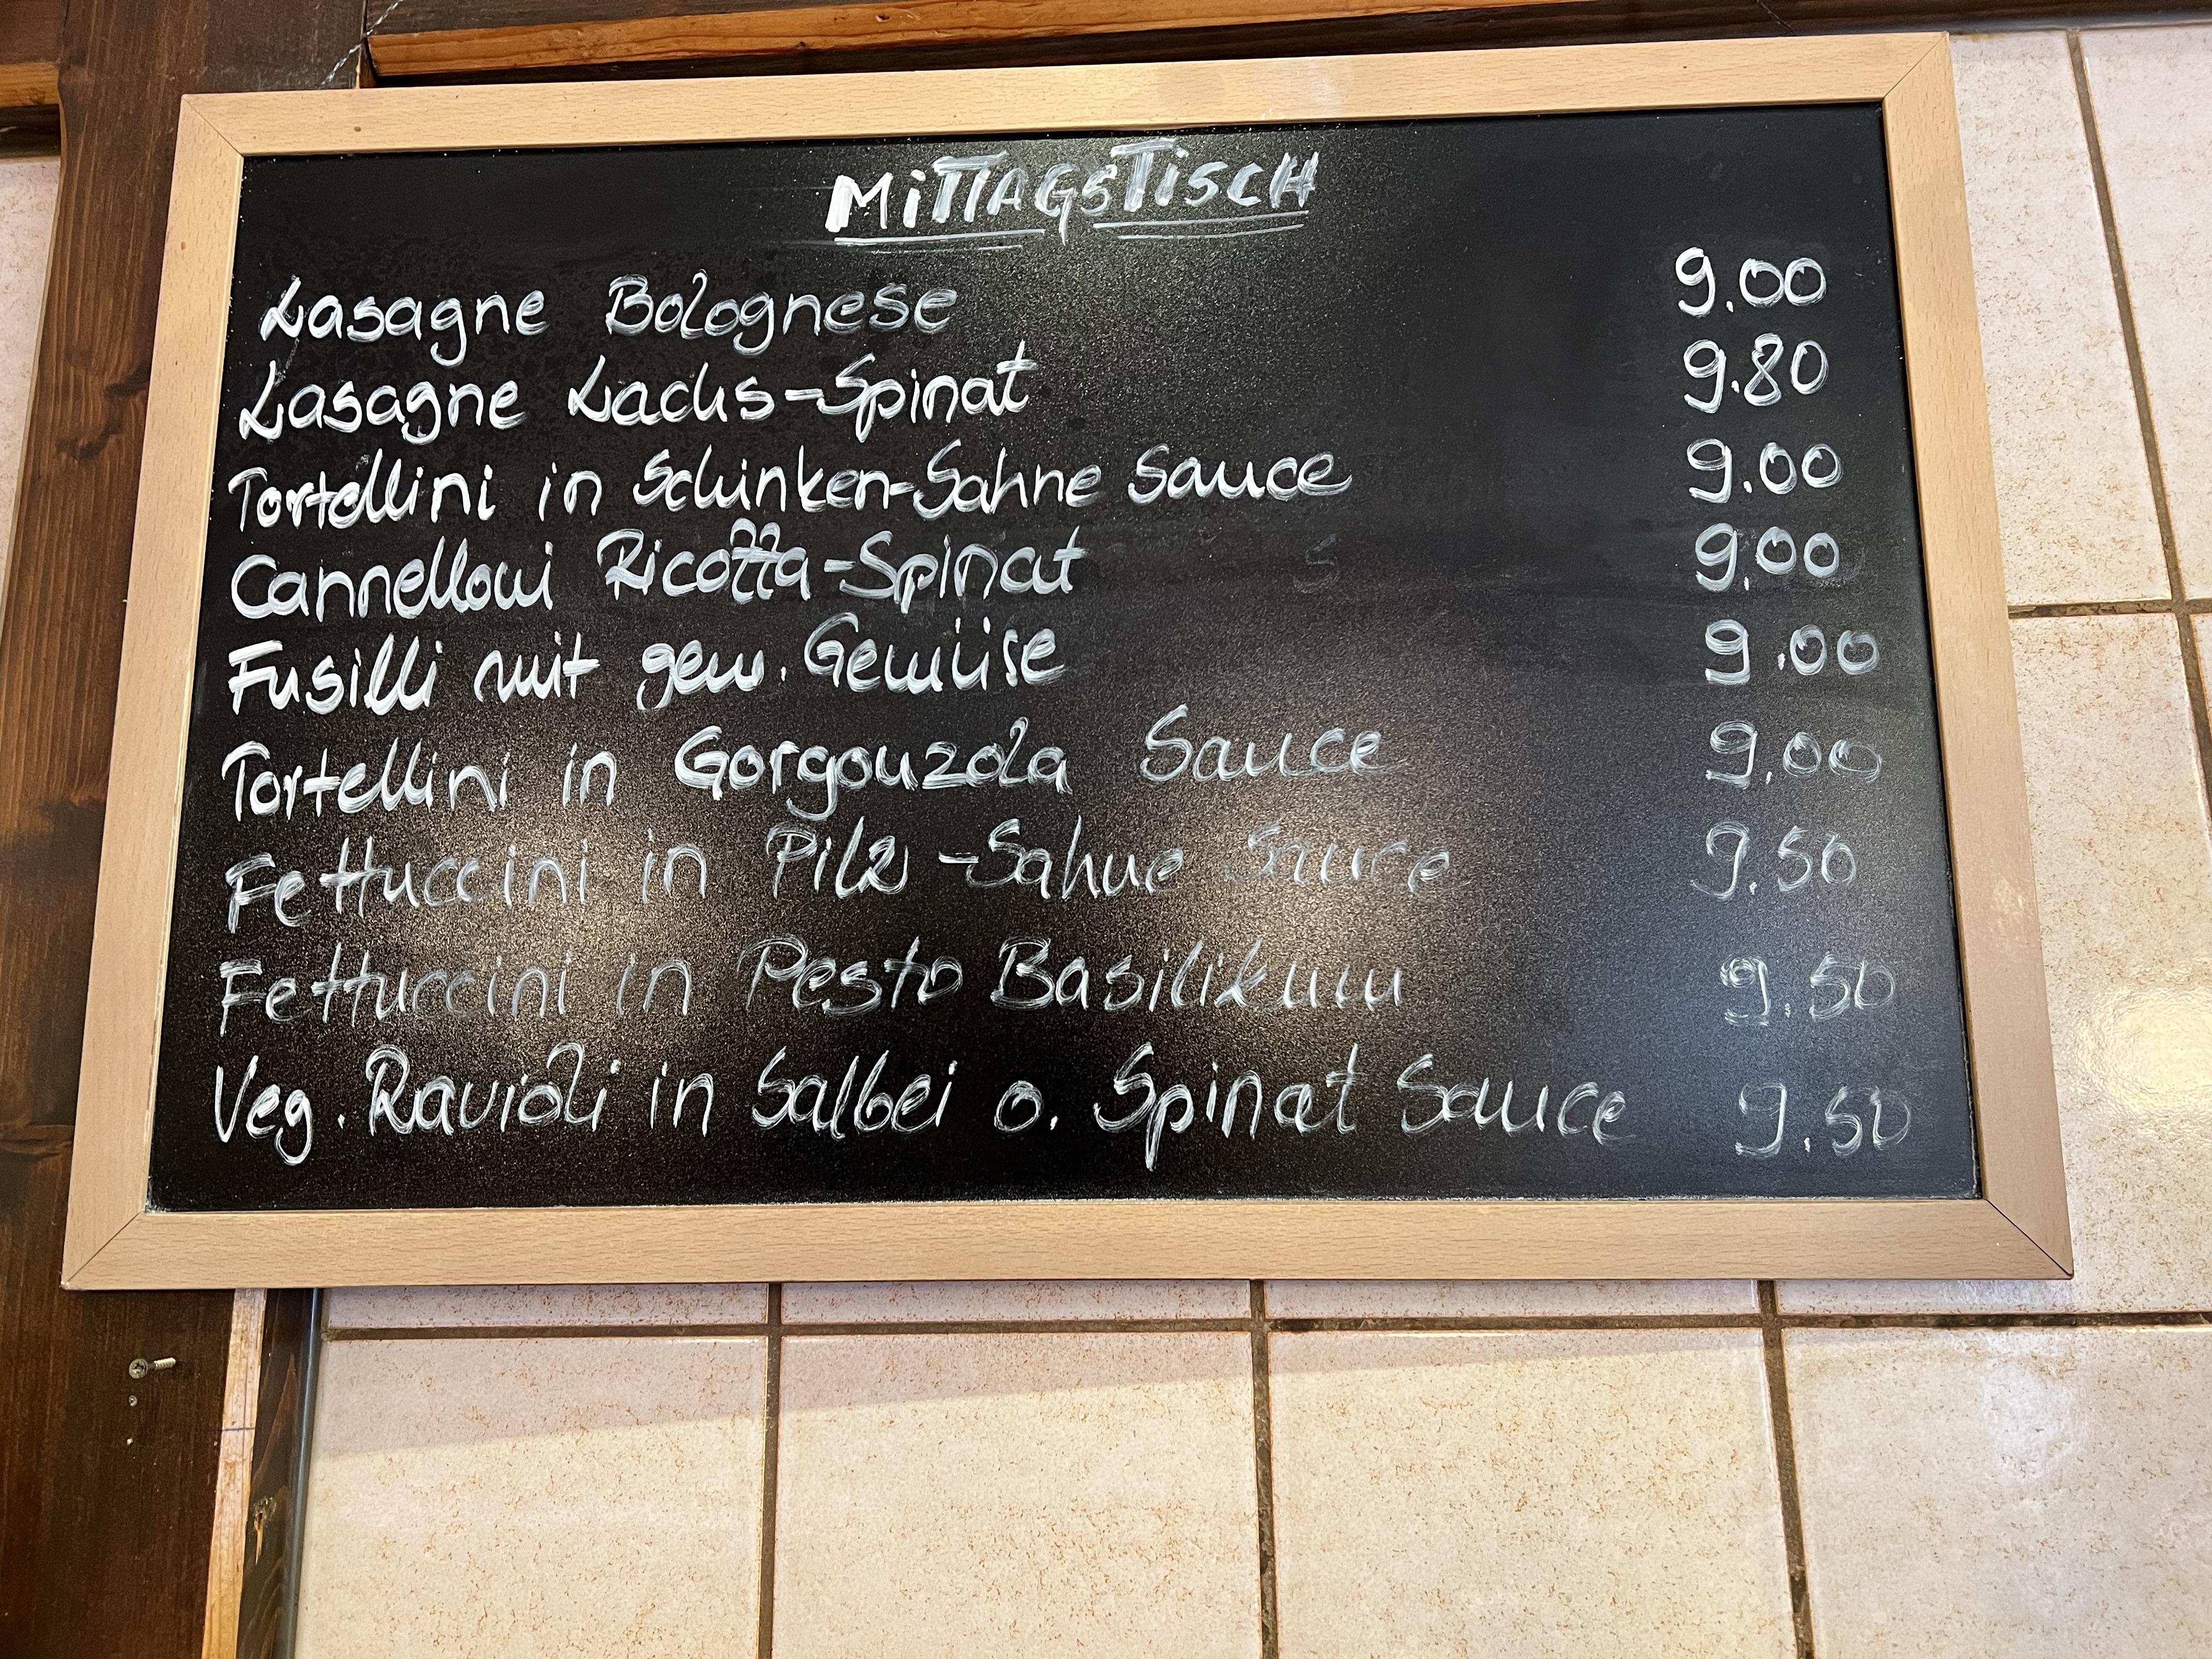 MiTTAGSTiSCH
Lasagne Bolognese 9.00
Lasagne Lachs-Spinat 9.80
Tortellini in Schinken-Sahne Sauce 9.00
Cannelloni Ricotta-Spinat 9.00
Fusilli mit gem. Gemüse 9.00
Tortellini in Gorgonzola Sauce 9.00
Fettuccini in Pilz-Sahne Sauce 9.50
Fettuccini in Pesto Basilikum 9.50
Veg. Ravioli in Salbei o. Spinat Sauce 9.50